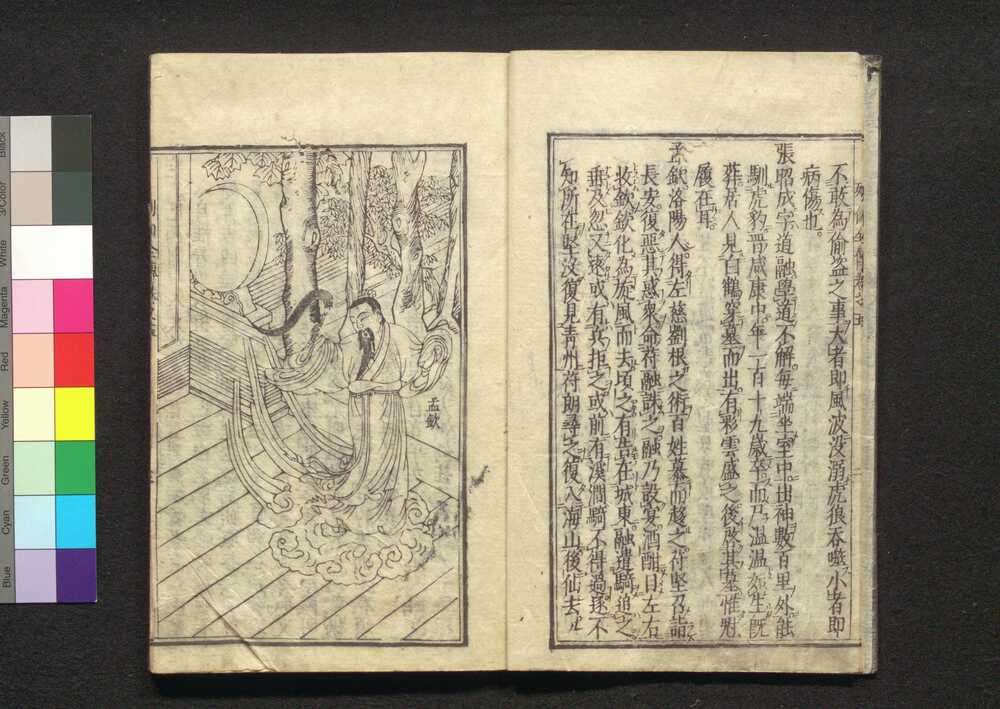 不敢為偷盗之事大者即風波没溺虎狼吞噬小者即
病傷也。
張昭成字道融學道不解毎端坐室中出神數百里外能
馴虎豹晋咸康中年一百十九歳卒而乃温温如生既
葬居人見白鶴穿墓而出有彩雲盛之後啓其墓惟冠
履在耳。
孟欽洛陽人得左慈劉根之術百姓慕而趍之苻堅召詣
長安復惡其惑衆命苻融誅之融乃設宴酒酣目左右
收欽欽化為旋風而去頃之有告在城東融遣騎追之
垂及忽又遠或有兵拒之或前有溪澗騎不得過遂不
知所在堅没復見青州苻朗尋之復入海山後仙去
孟欽
Black
3/Color
White
Magenta
Red
Yellow
Green
Cyan
Blue